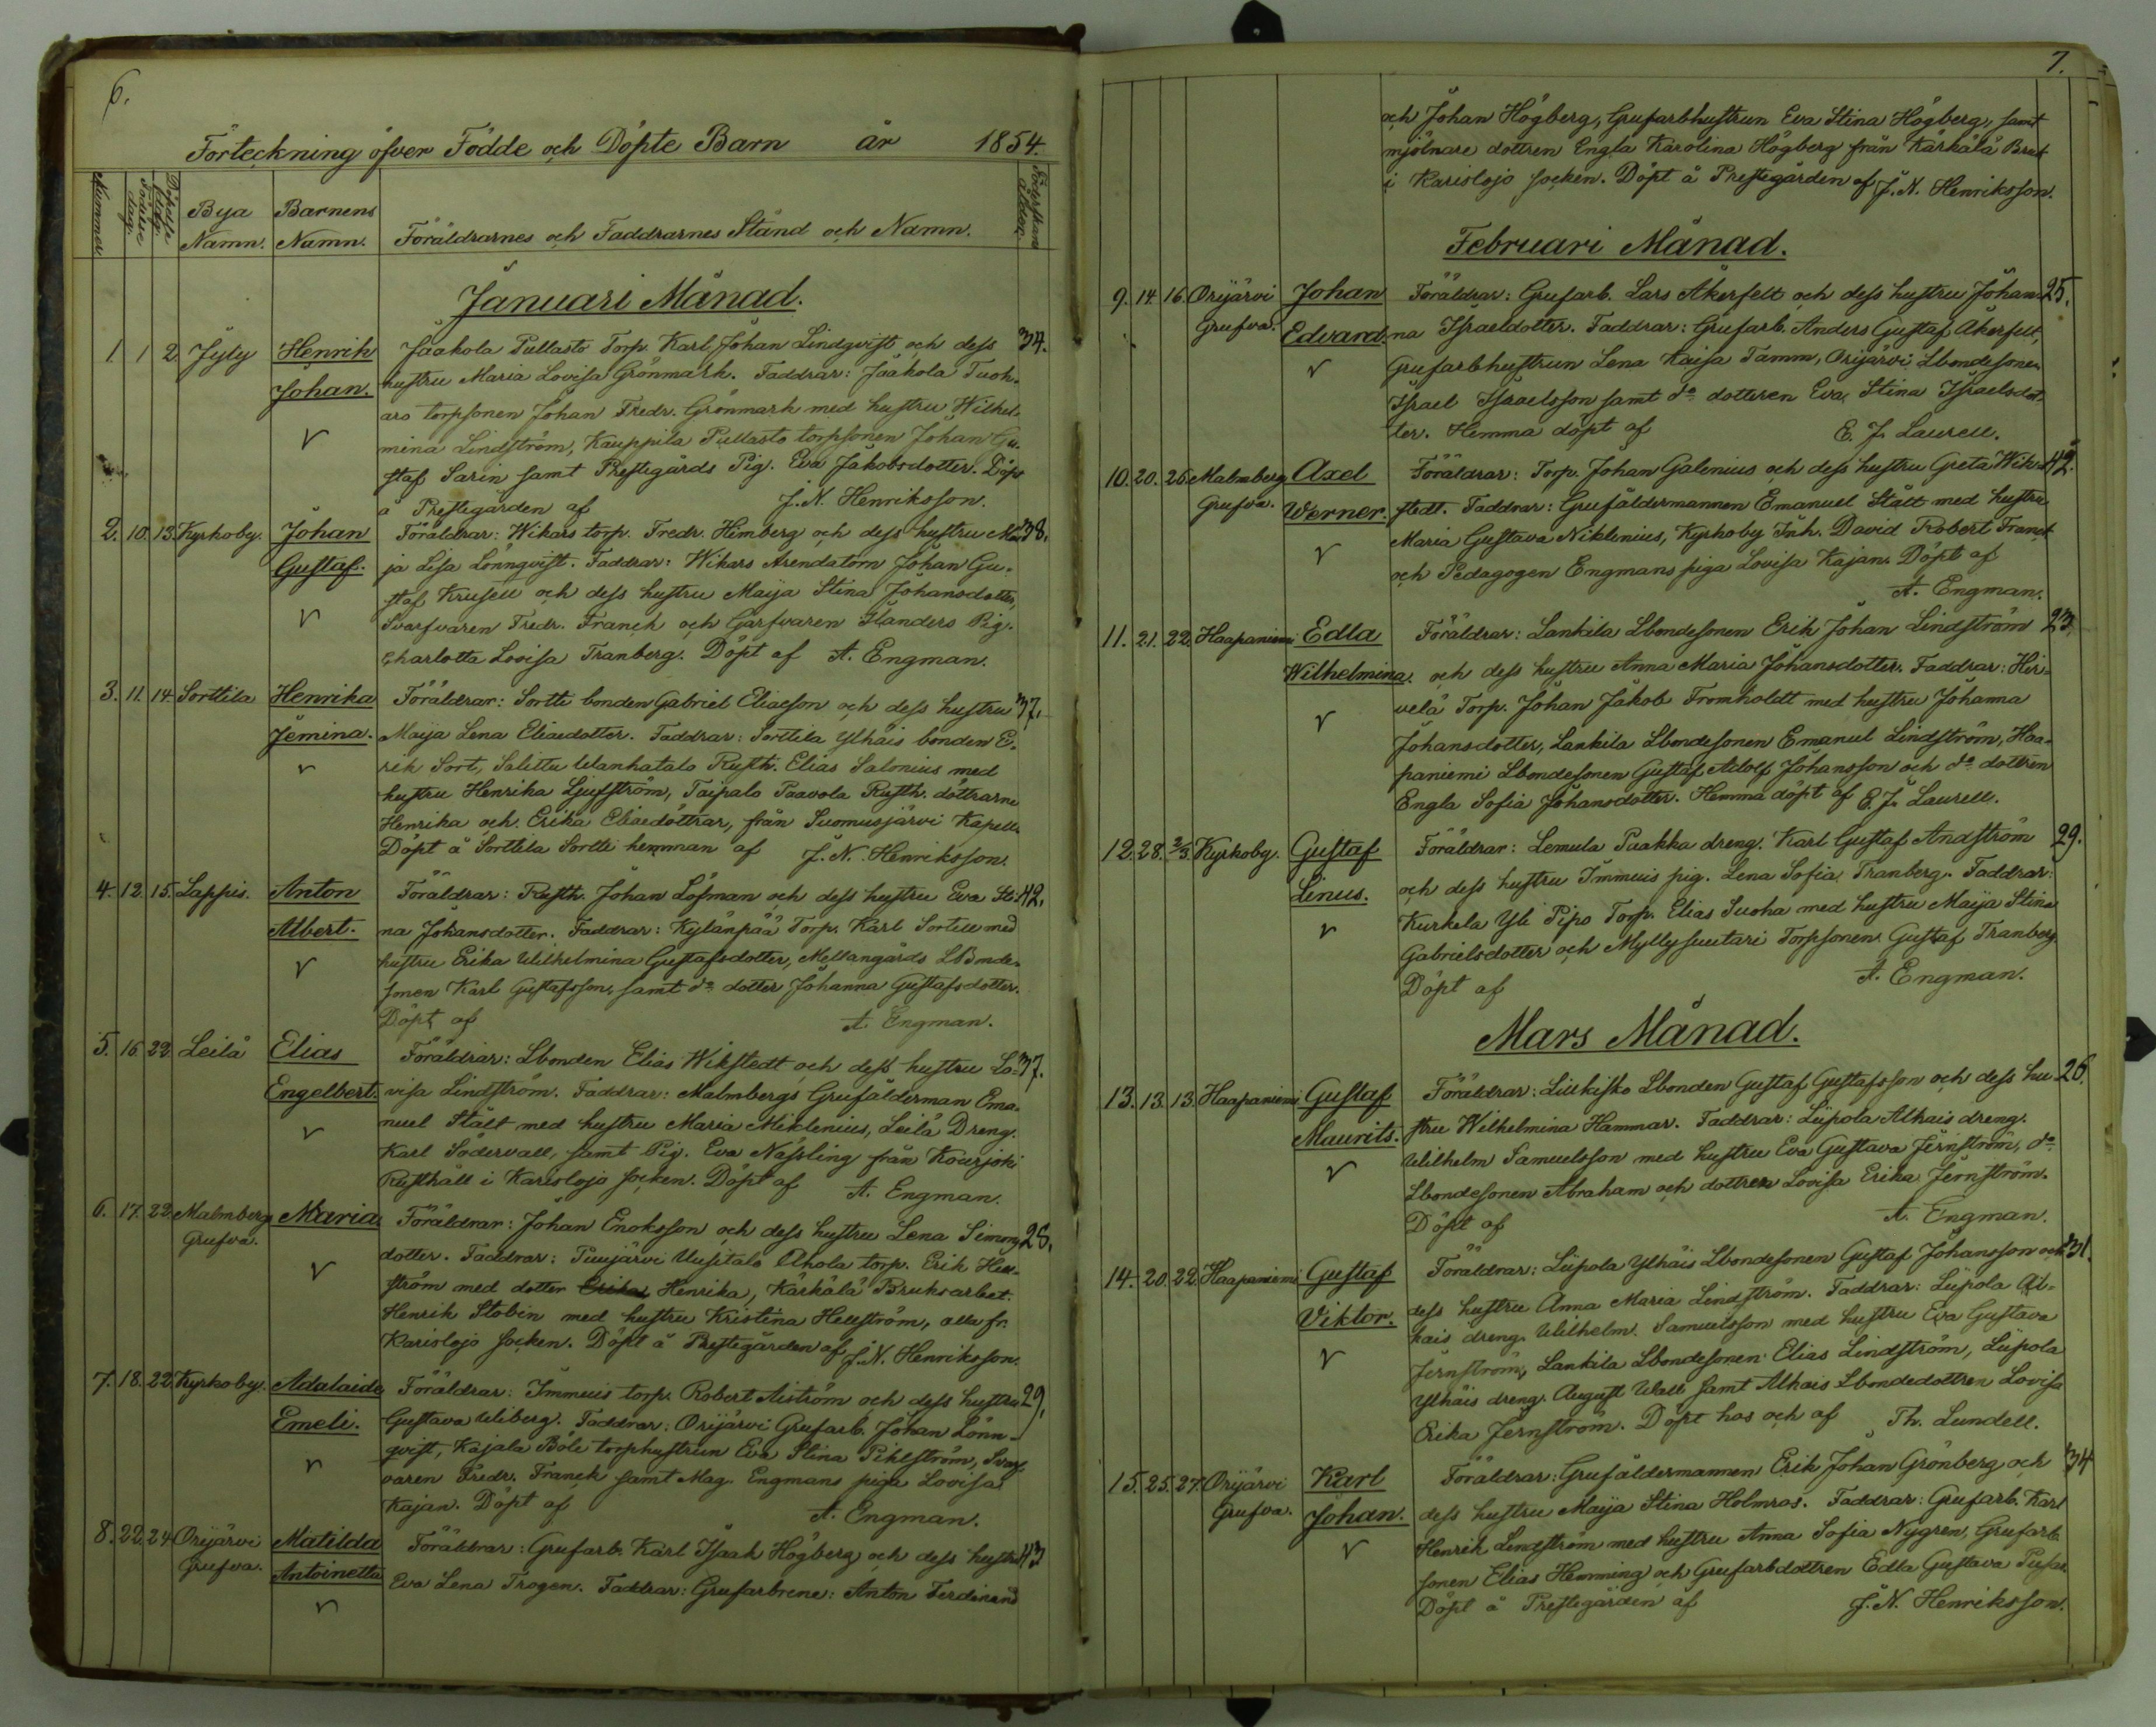 6.
Förteckning öfver Födde och Döpte Barn år 1854.
Nummer
Födelse dag.
Döpelse dag.
Bya Namn.
Barnens Namn.
Föräldrarnes och Faddrarnes Stånd och Namn.
Moderskans ålder.
Januari Månad.
1 1 2. Jyly Henrik Jaakola Pullasto Torp. Karl Johan Lindqvist och dess 34.
Johan. hustru Maria Lovisa Grönmark. Faddrar: Jaakola Tuoh-
aro torpsonen Johan Fredr. Grönmark med hustru Wilhel-
mina Lindström, Kauppila Pullasto torpsonen Johan Gu-
staf Sarin samt Prestegårds Pig. Eva Jakobsdotter. Döpt
å Prestegården af J. N. Henriksson.
2. 10. 13. Kyrkoby. Johan Föräldrar: Wikars torp. Fredr. Himberg och dess hustru Ma- 38.
Gustaf. ja Lisa Lönnqvist. Faddrar: Wikars Arendatorn Johan Gu-
staf Krusell och dess hustru Maija Stina Johansdotter,
Svarfvaren Fredr. Franck och Garfvaren Flanders Pig.
Charlotta Lovisa Tranberg. Döpt af A. Engman.
3. 11. 14. Sorttila Henrika Föräldrar: Sortti bonden Gabriel Eliaeson och dess hustru 37.
Jemina. Maija Lena Eliaedotter. Faddrar: Sorttila Ylhäis bonden E-
rik Sort, Salittu Wanhatalo Rusth. Elias Salonius med
hustru Henrika Ljufström, Taipalo Paavola Rusth. döttrarne
Henrika och Erika Eliaedöttrar, från Suomusjärvi Kapell.
Döpt å Sorttila Sortti hemman af J. N. Henriksson.
4. 12. 15. Lappis. Anton Föräldrar: Rusth. Johan Löfman och dess hustru Eva Sti- 42.
Albert. na Johansdotter. Faddrar: Kylänpää Torp. Karl Sortell med
hustru Erika Wilhelmina Gustafsdotter, Mellangårds Lbonde-
sonen Karl Gustafsson, samt do dotter Johanna Gustafsdotter.
Döpt af A. Engman.
5. 16. 22. Leilä Elias Föräldrar: Lbonden Elias Wikstedt och dess hustru Lo- 37.
Engelbert. visa Lindström. Faddrar: Malmbergs Grufålderman Ema-
nuel Stålt med hustru Maria Miklenius, Leilä Dreng.
Karl Södervall, samt Pig. Eva Nässling från Kourjoki
Rusthåll i Karislojo socken. Döpt af A. Engman.
6. 17. 22. Malmberg Maria Föräldrar: Johan Enoksson och dess hustru Lena Simons- 28.
Grufva. dotter. Faddrar: Puujärvi Uusitalo Ahola torp. Erik Hell-
ström med dotter Erika Henrika, Kärkälä Bruksarbet.
Henrik Stobin med hustru Kristina Hellström, alla fr.
Karislojo socken. Döpt å Prestegården af J. N. Henriksson.
7. 18. 22. Kyrkoby. Adalaide Föräldrar: Immeuis torp. Robert Aiström och dess hustru 29.
Emeli. Gustava Wiberg. Faddrar: Orijärvi Grufarb. Johan Lönn-
qvist, Kajala Böle torphustrun Eva Stina Pihlström, Svarf-
varen Fredr. Franck samt Mag. Engmans piga Lovisa
Kajan. Döpt af A. Engman.
8. 22. 24 Orijärvi Matilda Föräldrar: Grufarb. Karl Isaak Högberg och dess hustru 43
Grufva. Antoinetta Eva Lena Trogen. Faddrar: Grufarbrene: Anton Ferdinand
7.
och Johan Högberg, Grufarbhustrun Eva Stina Högberg, samt
mjölnare dottren Engla Karolina Högberg från Kärkälä Bruk
i Karislojo socken. Döpt å Prestegården af J. N. Henriksson.
Februari Månad.
9. 14. 16. Orijärvi Johan Föräldrar: Grufarb. Lars Åkerfelt och dess hustru Johan- 25.
Grufva. Edvard. na Israeldotter. Faddrar: Grufarb. Anders Gustaf Åkerfelt,
Grufarbhustrun Lena Kaisa Tamm, Orijärvi Lbondesonen
Israel Israelsson samt do dotteren Eva Stina Israelsdot-
ter. Hemma döpt af E. J. Laurell.
10. 20. 26. Malmberg Axel Föräldrar: Torp. Johan Galenius och dess hustru Greta Wik- 42.
Grufva. Werner. stedt. Faddrar: Grufåldermannen Emanuel Stålt med hustru
Maria Gustava Niklenius, Kyrkoby Inh. David Robert Franck
och Pedagogen Engmans piga Lovisa Kajan. Döpt af
A. Engman.
11. 21. 22. Haapaniemi Edla Föräldrar: Lankila Lbondesonen Erik Johan Lindström 23.
Wilhelmina. och dess hustru Anna Maria Johansdotter. Faddrar: Hir-
velä Torp. Johan Jakob Fromholdt med hustru Johanna
Johansdotter, Lankila Lbondesonen Emanuel Lindström, Haa-
paniemi Lbondesonen Gustaf Adolf Johansson och do dottren
Engla Sofia Johansdotter. Hemma döpt af E. J. Laurell.
12. 28. 2/3. Kyrkoby. Gustaf Föräldrar: Lemula Paakka dreng. Karl Gustaf Andström 29.
Linus. och dess hustru Immeuis pig. Lena Sofia Tranberg. Faddrar:
Kurkela Yli Pipo Torp. Elias Suoha med hustru Maija Stina
Gabrielsdotter och Myllysuutari Torpsonen Gustaf Tranberg.
Döpt af A. Engman.
Mars Månad.
13. 13. 13. Haapaniemi Gustaf Föräldrar: Liukisko Lbonden Gustaf Gustafsson och dess hu- 26.
Maurits. stru Wilhelmina Hammar. Faddrar: Liipola Alhais dreng.
Wilhelm Samuelsson med hustru Eva Gustava Jernström, do
Lbondesonen Abraham och dottren Lovisa Erika Jernström.
Döpt af A. Engman.
14. 20. 22. Haapaniemi Gustaf Föräldrar: Liipola Ylhäis Lbondesonen Gustaf Johansson och 31.
Viktor. dess hustru Anna Maria Lindström. Faddrar: Liipola Al-
hais dreng. Wilhelm Samuelsson med hustru Eva Gustava
Jernström, Lankila Lbondesonen Elias Lindström, Liipola
Ylhäis dreng. August Wall samt Alhais Lbondedottren Lovisa
Erika Jernström. Döpt hos och af Th. Lundell.
15. 25. 27. Orijärvi Karl Föräldrar: Grufåldermannen Erik Johan Grönberg och 34
Grufva. Johan. dess hustru Maija Stina Holmros. Faddrar: Grufarb. Karl
Henrik Lindström med hustru Anna Sofia Nygren, Grufarb.
sonen Elias Hemming och Grufarbdottren Edla Gustava
Döpt å Prestegården af J. N. Henriksson.